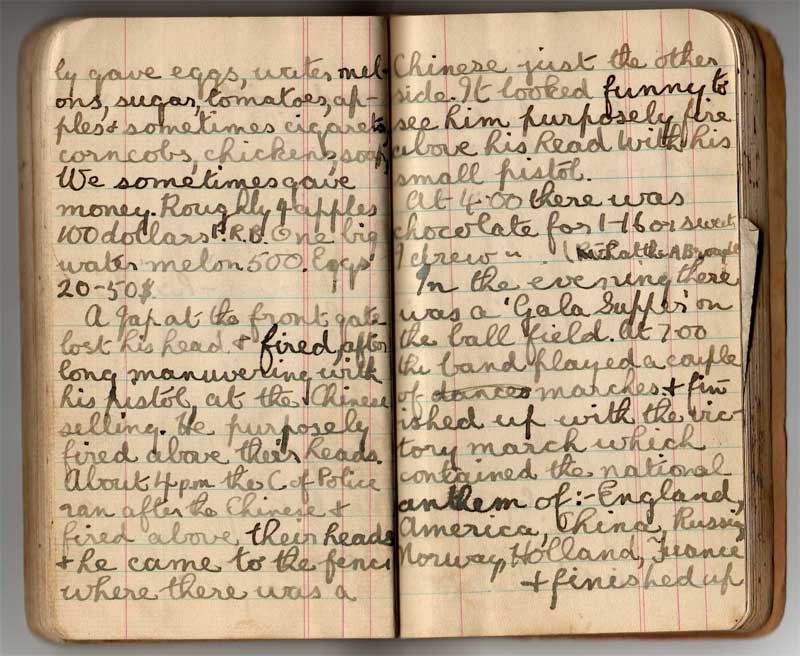 ly gave eggs, water mel-
ons, sugar, tomatoes, ap-
ples & sometimes cigarets
corncobs, chickens, soap,
We sometimes gave
money. Roughly 4 apples
100 dollars F.R.B. One big
water melon 500. Eggs
20-50$.
A Jap at the front gate
lost his head & fired, after
long manuvering with
his pistol, at the Chinese
selling. He purposely
fired above their heads.
About 4 pm the C of Police
ran after the Chinese &
fired above, their heads
& he came to the fence
where there was a
Chinese just the other
side. It looked funny to
see him purposely fire
above his head with his
small pistol.
At 4.00 there was
chocolate for 1-16 or sweets
I drew " . ( at the
In the evening there
was a 'Gala Supper' on
the ball field. At 7.00
the band played a couple
of dances marches & fin-
ished up with the vic-
tory march which
contained the national
anthem of:- England,
America, China, Russia
Norway, Holland, France
& finished up